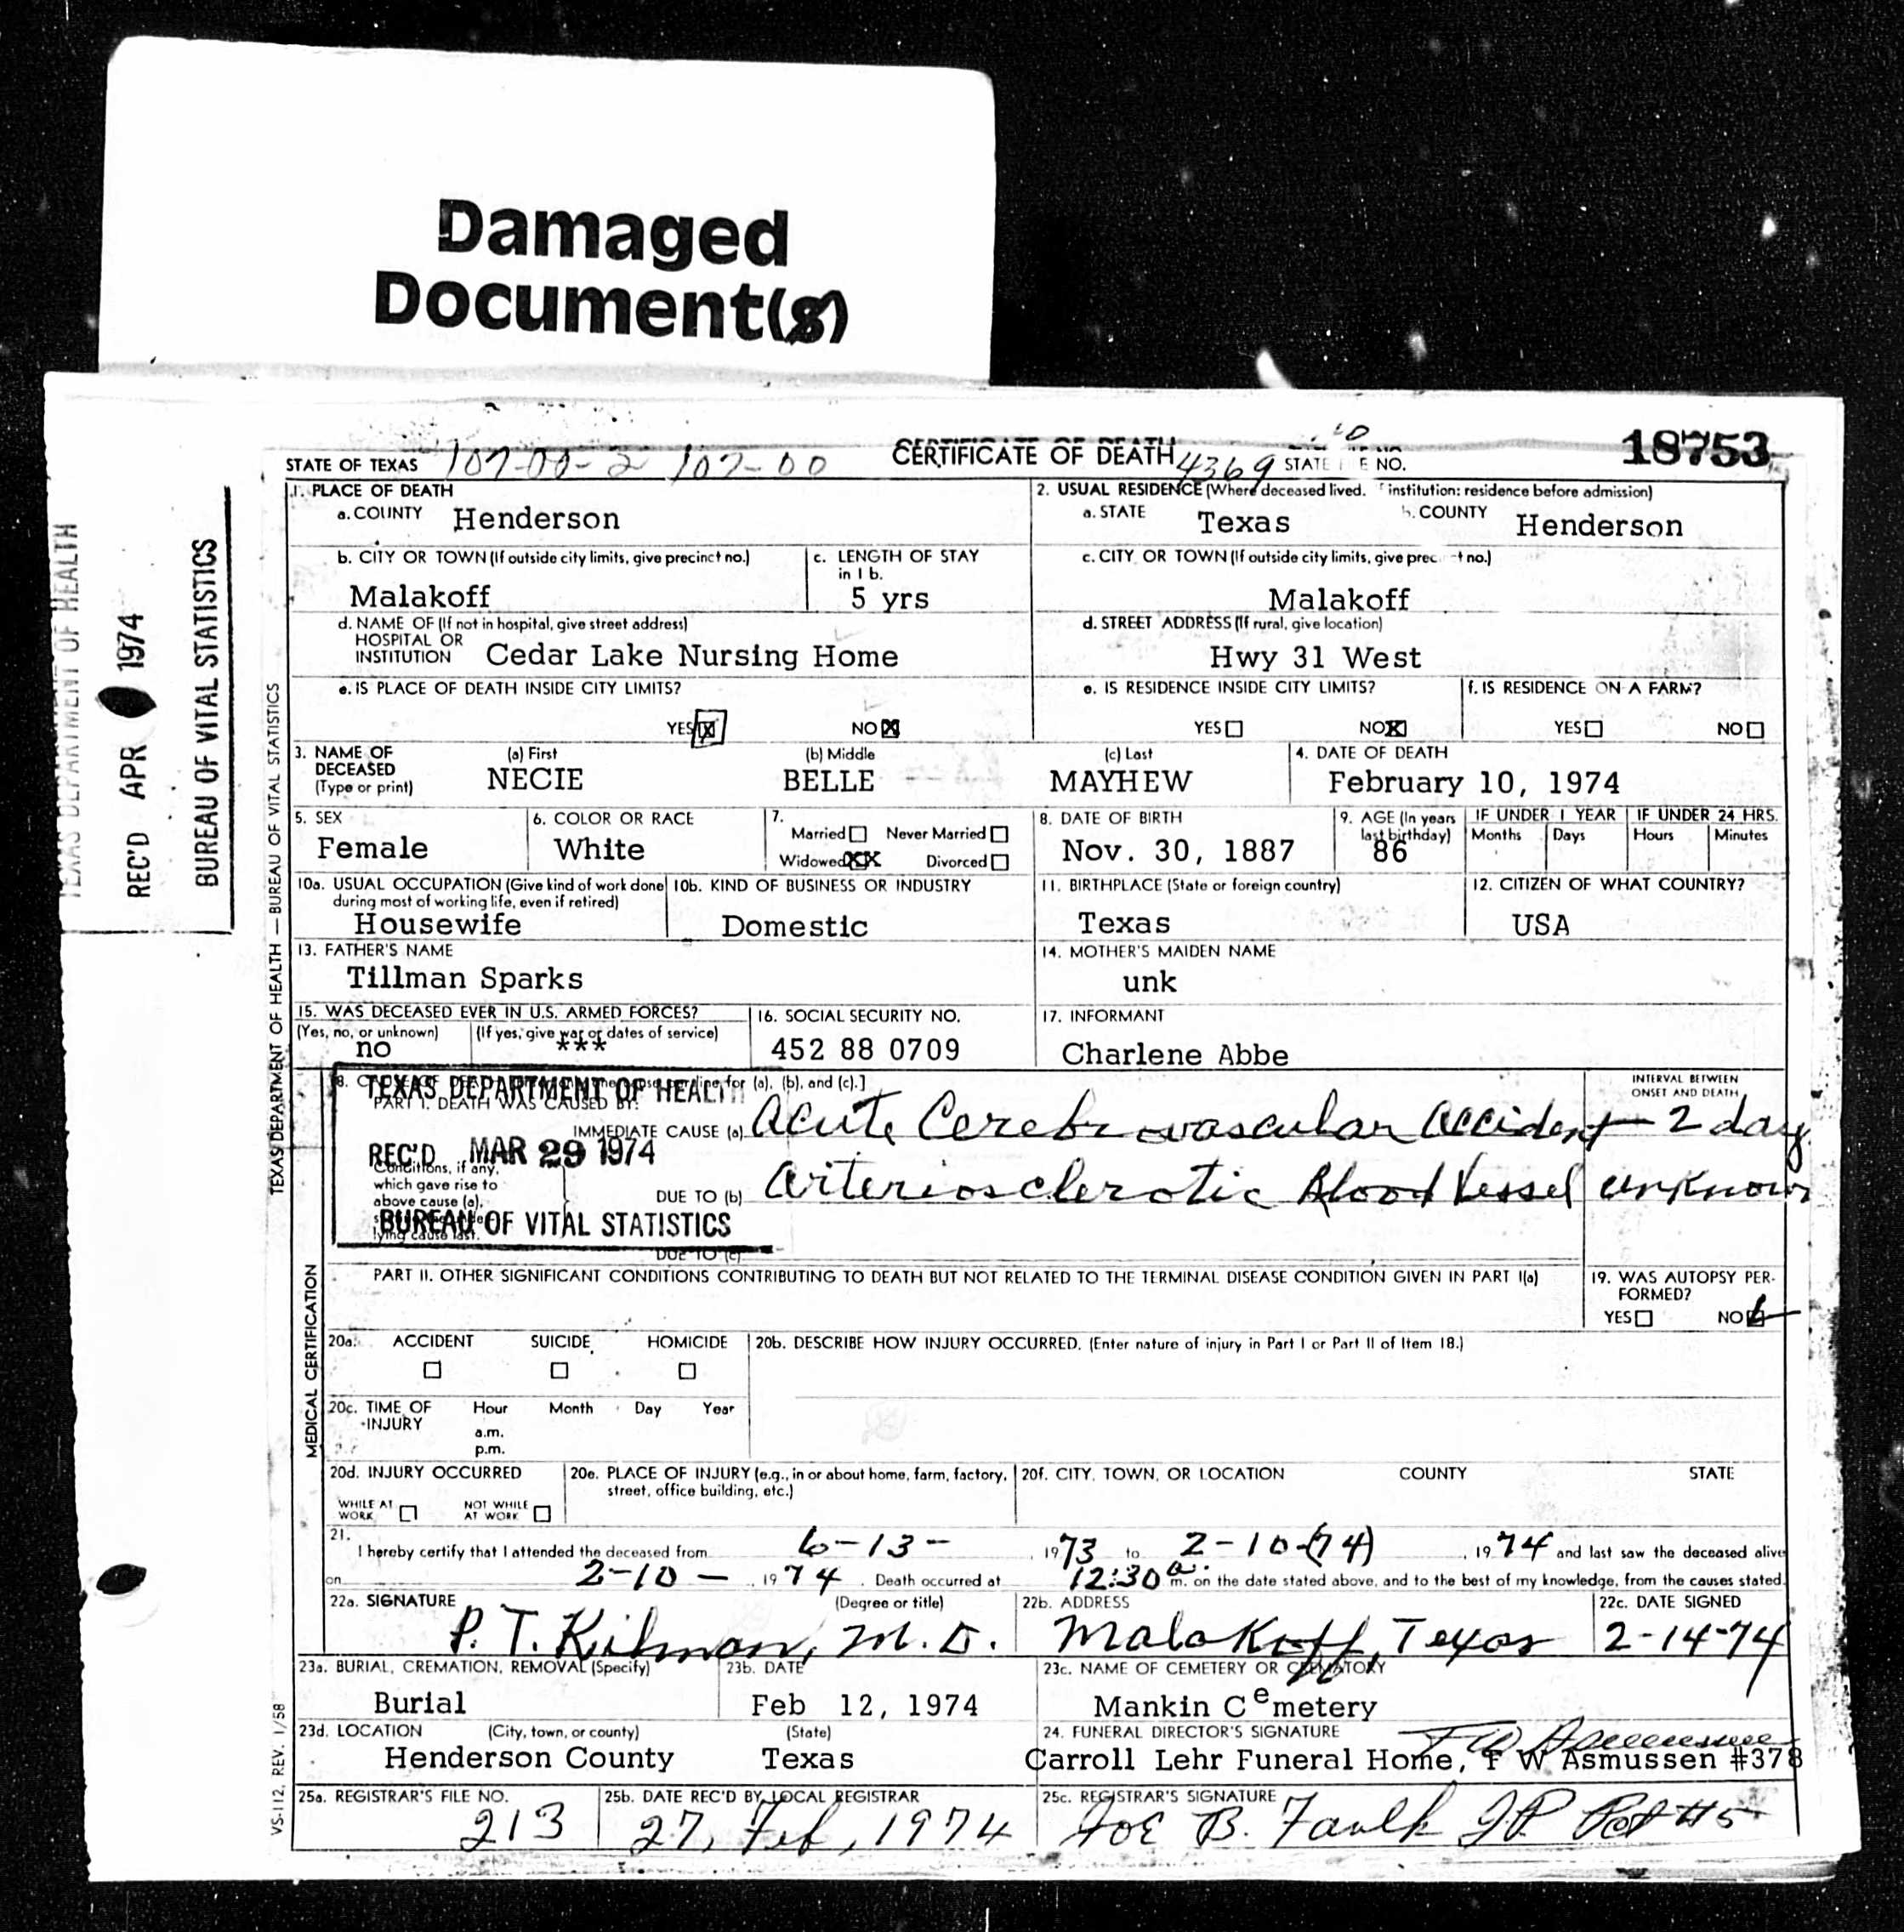 Damaged
Document(s)
TEXAS DEPARTMENT OF HEALTH
REC'D APR 1974
BUREAU OF VITAL STATISTICS
TEXAS DEPARTMENT OF HEALTH — BUREAU OF VITAL STATISTICS
VS-112, REV. 1/58
STATE OF TEXAS 107-00-2 107-00 CERTIFICATE OF DEATH 4369 STATE FILE NO. 18753
1. PLACE OF DEATH
a. COUNTY Henderson
2. USUAL RESIDENCE (Where deceased lived. institution: residence before admission)
a. STATE Texas b. COUNTY Henderson
b. CITY OR TOWN (If outside city limits, give precinct no.) Malakoff
c. LENGTH OF STAY in 1 b. 5 yrs
c. CITY OR TOWN (If outside city limits, give prec t no.) Malakoff
d. NAME OF (If not in hospital, give street address)
HOSPITAL OR
INSTITUTION Cedar Lake Nursing Home
d. STREET ADDRESS (If rural, give location)
Hwy 31 West
e. IS PLACE OF DEATH INSIDE CITY LIMITS?
YES X NO X
e. IS RESIDENCE INSIDE CITY LIMITS?
YES NO X
f. IS RESIDENCE ON A FARM?
YES NO
3. NAME OF DECEASED (Type or print)
(a) First NECIE (b) Middle BELLE (c) Last MAYHEW
4. DATE OF DEATH
February 10, 1974
5. SEX
Female
6. COLOR OR RACE
White
7.
Married Never Married
Widowed XX Divorced
8. DATE OF BIRTH
Nov. 30, 1887
9. AGE (In years last birthday)
86
IF UNDER 1 YEAR
Months Days
IF UNDER 24 HRS.
Hours Minutes
10a. USUAL OCCUPATION (Give kind of work done during most of working life, even if retired)
Housewife
10b. KIND OF BUSINESS OR INDUSTRY
Domestic
11. BIRTHPLACE (State or foreign country)
Texas
12. CITIZEN OF WHAT COUNTRY?
USA
13. FATHER'S NAME
Tillman Sparks
14. MOTHER'S MAIDEN NAME
unk
15. WAS DECEASED EVER IN U.S. ARMED FORCES?
(Yes, no, or unknown) (If yes, give war or dates of service)
no ***
16. SOCIAL SECURITY NO.
452 88 0709
17. INFORMANT
Charlene Abbe
MEDICAL CERTIFICATION
line for (a), (b), and (c).]
TEXAS DEPARTMENT OF HEALTH
PART I. DEATH WAS CAUSED BY:
IMMEDIATE CAUSE (a) Acute Cerebrovascular Accident
INTERVAL BETWEEN
ONSET AND DEATH
2 day
REC'D MAR 29 1974
Conditions, if any,
which gave rise to
above cause (a),
lying cause last.
DUE TO (b) Arteriosclerotic Blood Vessel unknown
BUREAU OF VITAL STATISTICS
DUE TO (c)
PART II. OTHER SIGNIFICANT CONDITIONS CONTRIBUTING TO DEATH BUT NOT RELATED TO THE TERMINAL DISEASE CONDITION GIVEN IN PART I(a)
19. WAS AUTOPSY PER-
FORMED?
YES NO
20a. ACCIDENT SUICIDE HOMICIDE
20b. DESCRIBE HOW INJURY OCCURRED. (Enter nature of injury in Part I or Part II of Item 18.)
20c. TIME OF INJURY Hour Month Day Year
a.m.
p.m.
20d. INJURY OCCURRED
WHILE AT WORK NOT WHILE AT WORK
20e. PLACE OF INJURY (e.g., in or about home, farm, factory, street, office building, etc.)
20f. CITY, TOWN, OR LOCATION COUNTY STATE
21.
I hereby certify that I attended the deceased from 6-13- , 1973 to 2-10-(74) , 1974 and last saw the deceased alive
on 2-10- , 1974 . Death occurred at 12:30 a. m. on the date stated above, and to the best of my knowledge, from the causes stated.
22a. SIGNATURE (Degree or title)
P. T. Kilman, M.D.
22b. ADDRESS
Malakoff, Texas
22c. DATE SIGNED
2-14-74
23a. BURIAL, CREMATION, REMOVAL (Specify)
Burial
23b. DATE
Feb 12, 1974
23c. NAME OF CEMETERY OR CREMATORY
Mankin Cemetery
23d. LOCATION (City, town, or county) (State)
Henderson County Texas
24. FUNERAL DIRECTOR'S SIGNATURE
F W Asmussen
Carroll Lehr Funeral Home, F W Asmussen #378
25a. REGISTRAR'S FILE NO.
213
25b. DATE REC'D BY LOCAL REGISTRAR
27, Feb, 1974
25c. REGISTRAR'S SIGNATURE
Joe B. Faulk JP Pct #5